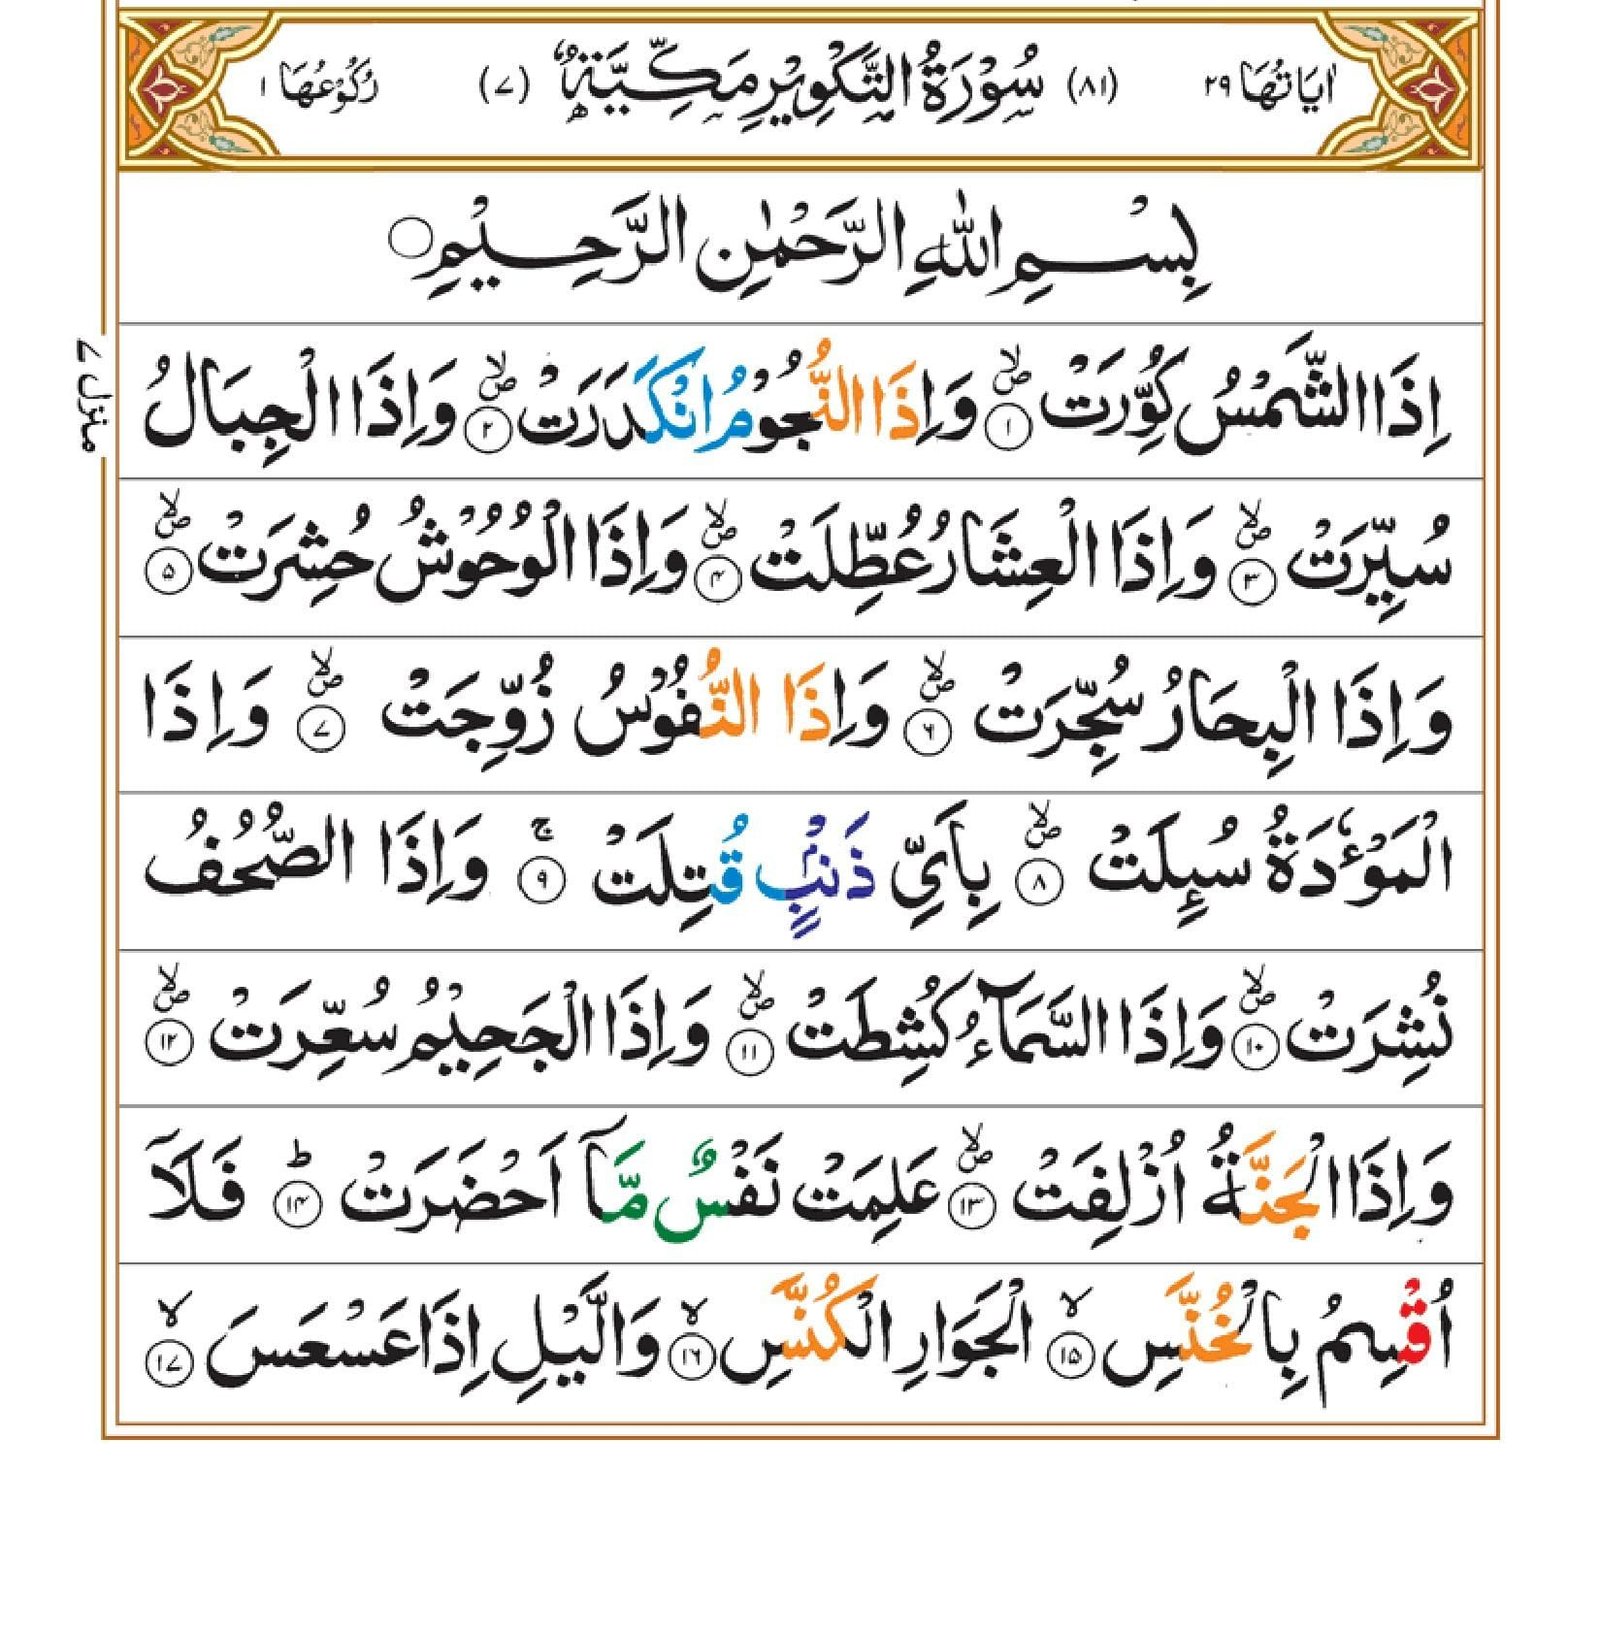 اٰيَاتُهَا ٢٩ (٨١) سُوْرَةُ التَّكْوِيْرِ مَكِّيَّةٌ (٧) رُكُوْعُهَا ١
بِسْمِ اللّٰهِ الرَّحْمٰنِ الرَّحِيْمِ
اِذَا الشَّمْسُ كُوِّرَتْ ۪ۙ ١ وَاِذَا النُّجُوْمُ انْكَدَرَتْ ۪ۙ ٢ وَاِذَا الْجِبَالُ
سُيِّرَتْ ۪ۙ ٣ وَاِذَا الْعِشَارُ عُطِّلَتْ ۪ۙ ٤ وَاِذَا الْوُحُوْشُ حُشِرَتْ ۪ۙ ٥
وَاِذَا الْبِحَارُ سُجِّرَتْ ۪ۙ ٦ وَاِذَا النُّفُوْسُ زُوِّجَتْ ۪ۙ ٧ وَاِذَا
الْمَوْءٗدَةُ سُىِٕلَتْ ۪ۙ ٨ بِاَىِّ ذَنْۢبٍ قُتِلَتْ ۚ ٩ وَاِذَا الصُّحُفُ
نُشِرَتْ ۪ۙ ١٠ وَاِذَا السَّمَآءُ كُشِطَتْ ۪ۙ ١١ وَاِذَا الْجَحِيْمُ سُعِّرَتْ ۪ۙ ١٢
وَاِذَا الْجَنَّةُ اُزْلِفَتْ ۪ۙ ١٣ عَلِمَتْ نَفْسٌ مَّاۤ اَحْضَرَتْ ؕ ١٤ فَلَاۤ
اُقْسِمُ بِالْخُنَّسِ ۙ ١٥ الْجَوَارِ الْكُنَّسِ ۙ ١٦ وَالَّيْلِ اِذَا عَسْعَسَ ۙ ١٧
منزل ٧